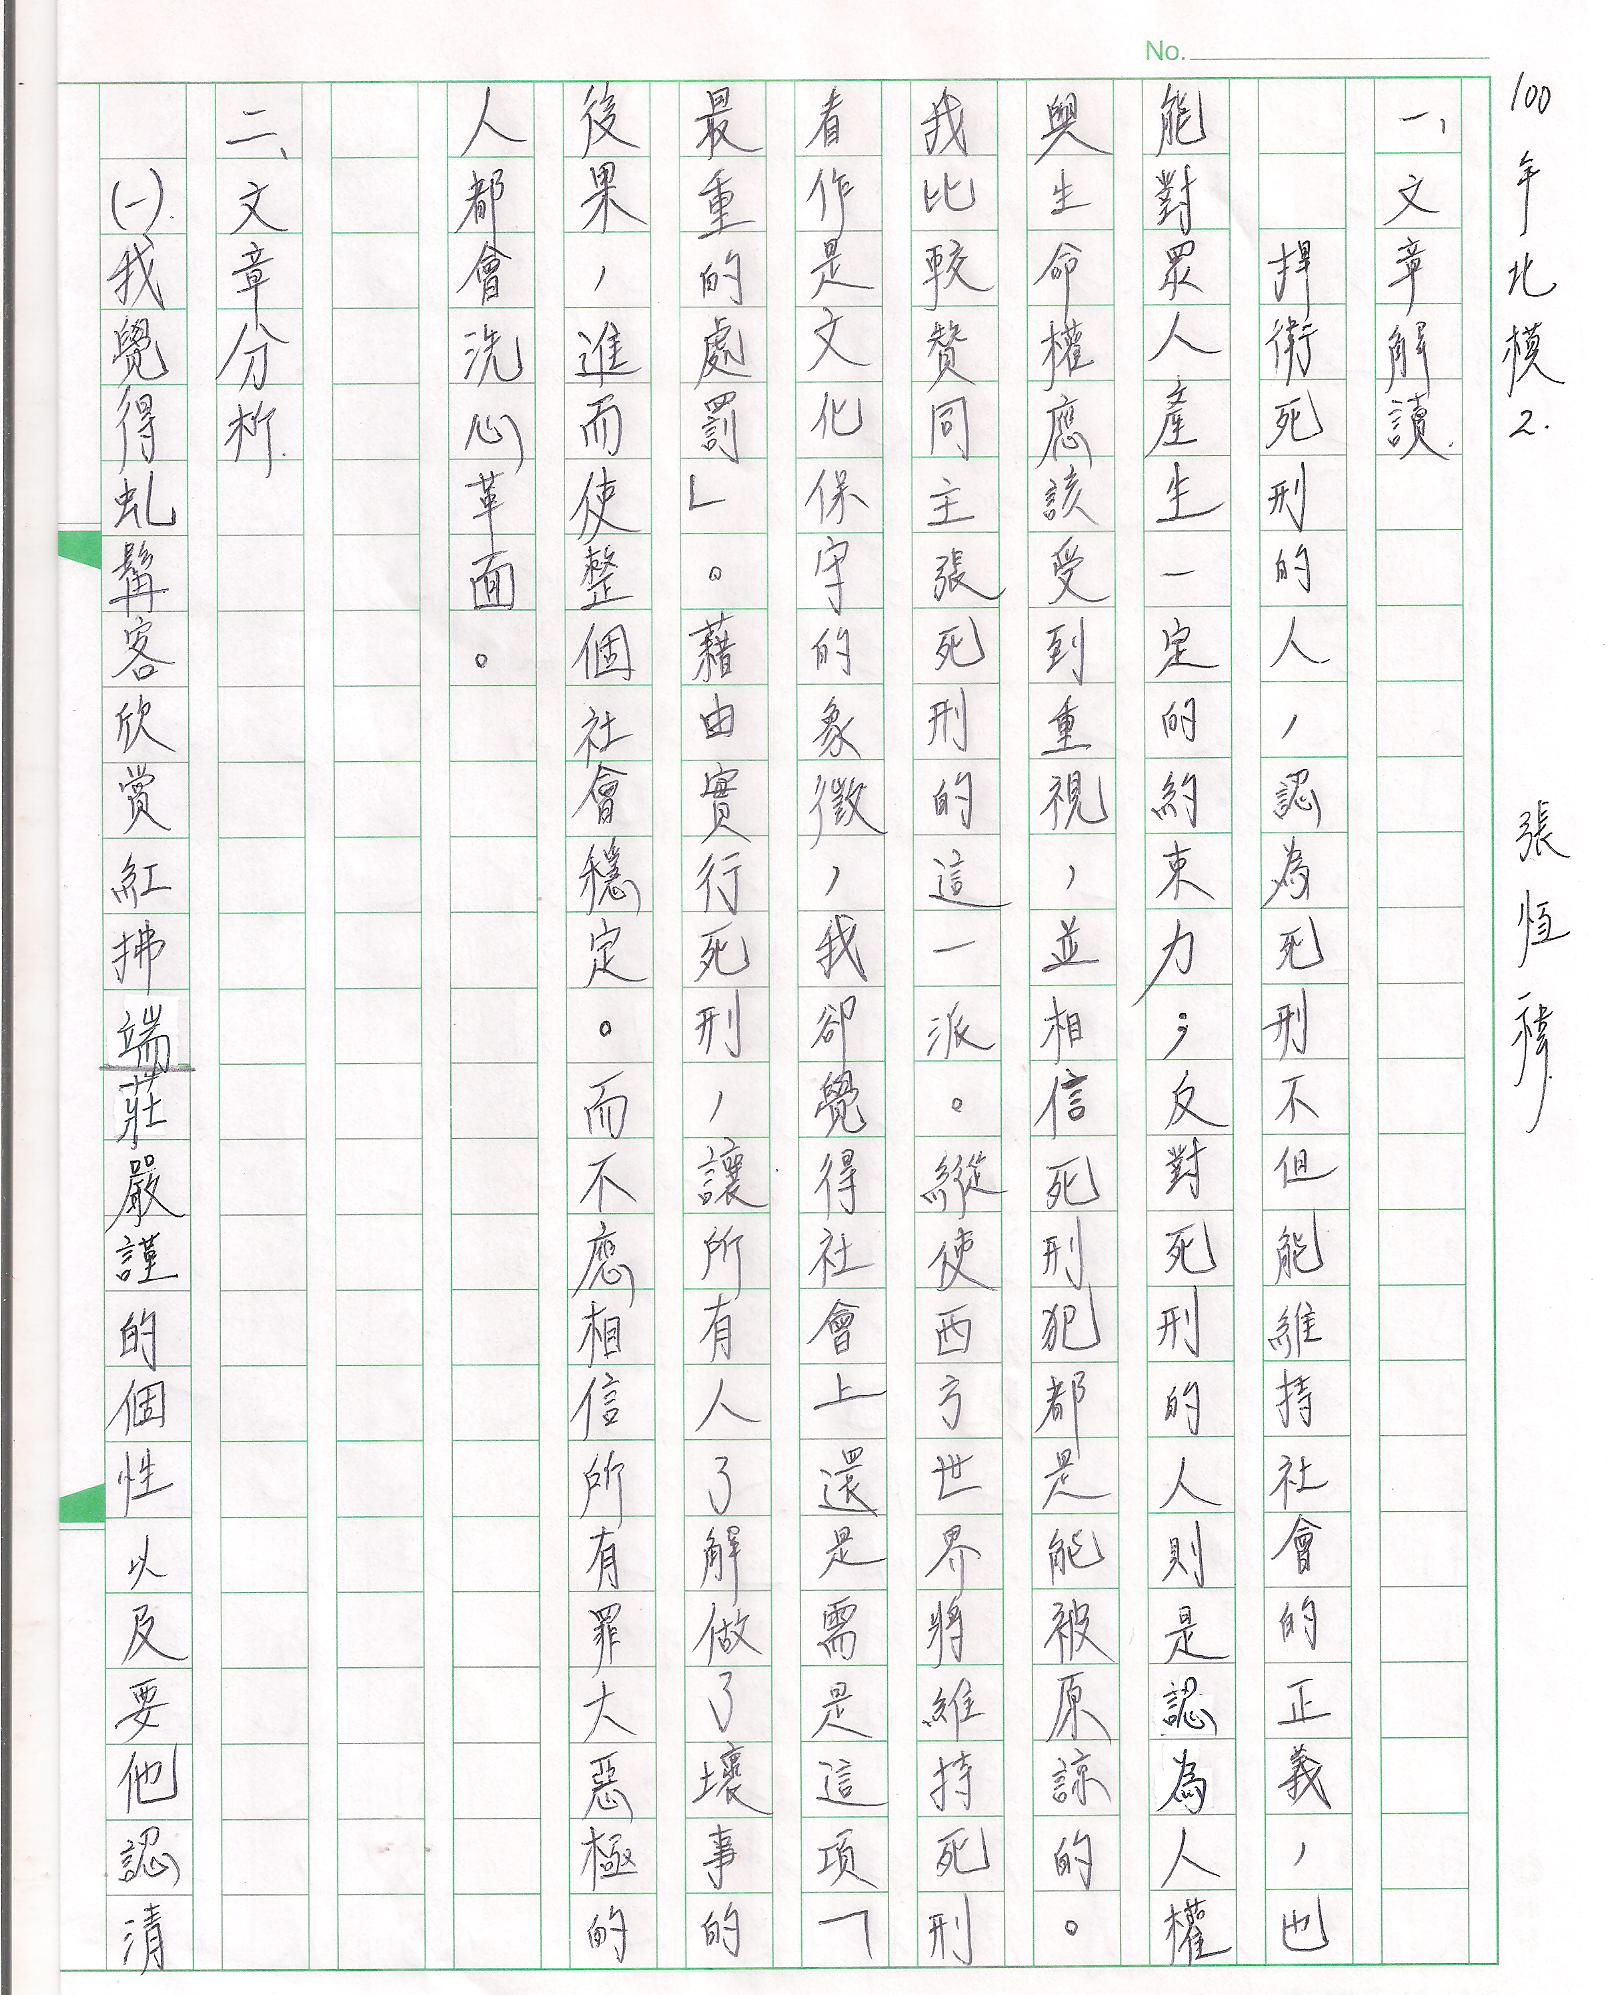 No.
100年北模2. 張恆禕
一、文章解讀.
捍衛死刑的人，認為死刑不但能維持社會的正義，也
能對眾人產生一定的約束力；反對死刑的人則是認為人權
與生命權應該受到重視，並相信死刑犯都是能被原諒的。
我比較贊同主張死刑的這一派。縱使西方世界將維持死刑
看作是文化保守的象徵，我卻覺得社會上還是需是這項「
最重的處罰」。藉由實行死刑，讓所有人了解做了壞事的
後果，進而使整個社會穩定。而不應相信所有罪大惡極的
人都會洗心革面。
二、文章分析.
(一).我覺得虬髯客欣賞紅拂端莊嚴謹的個性以及要他認清